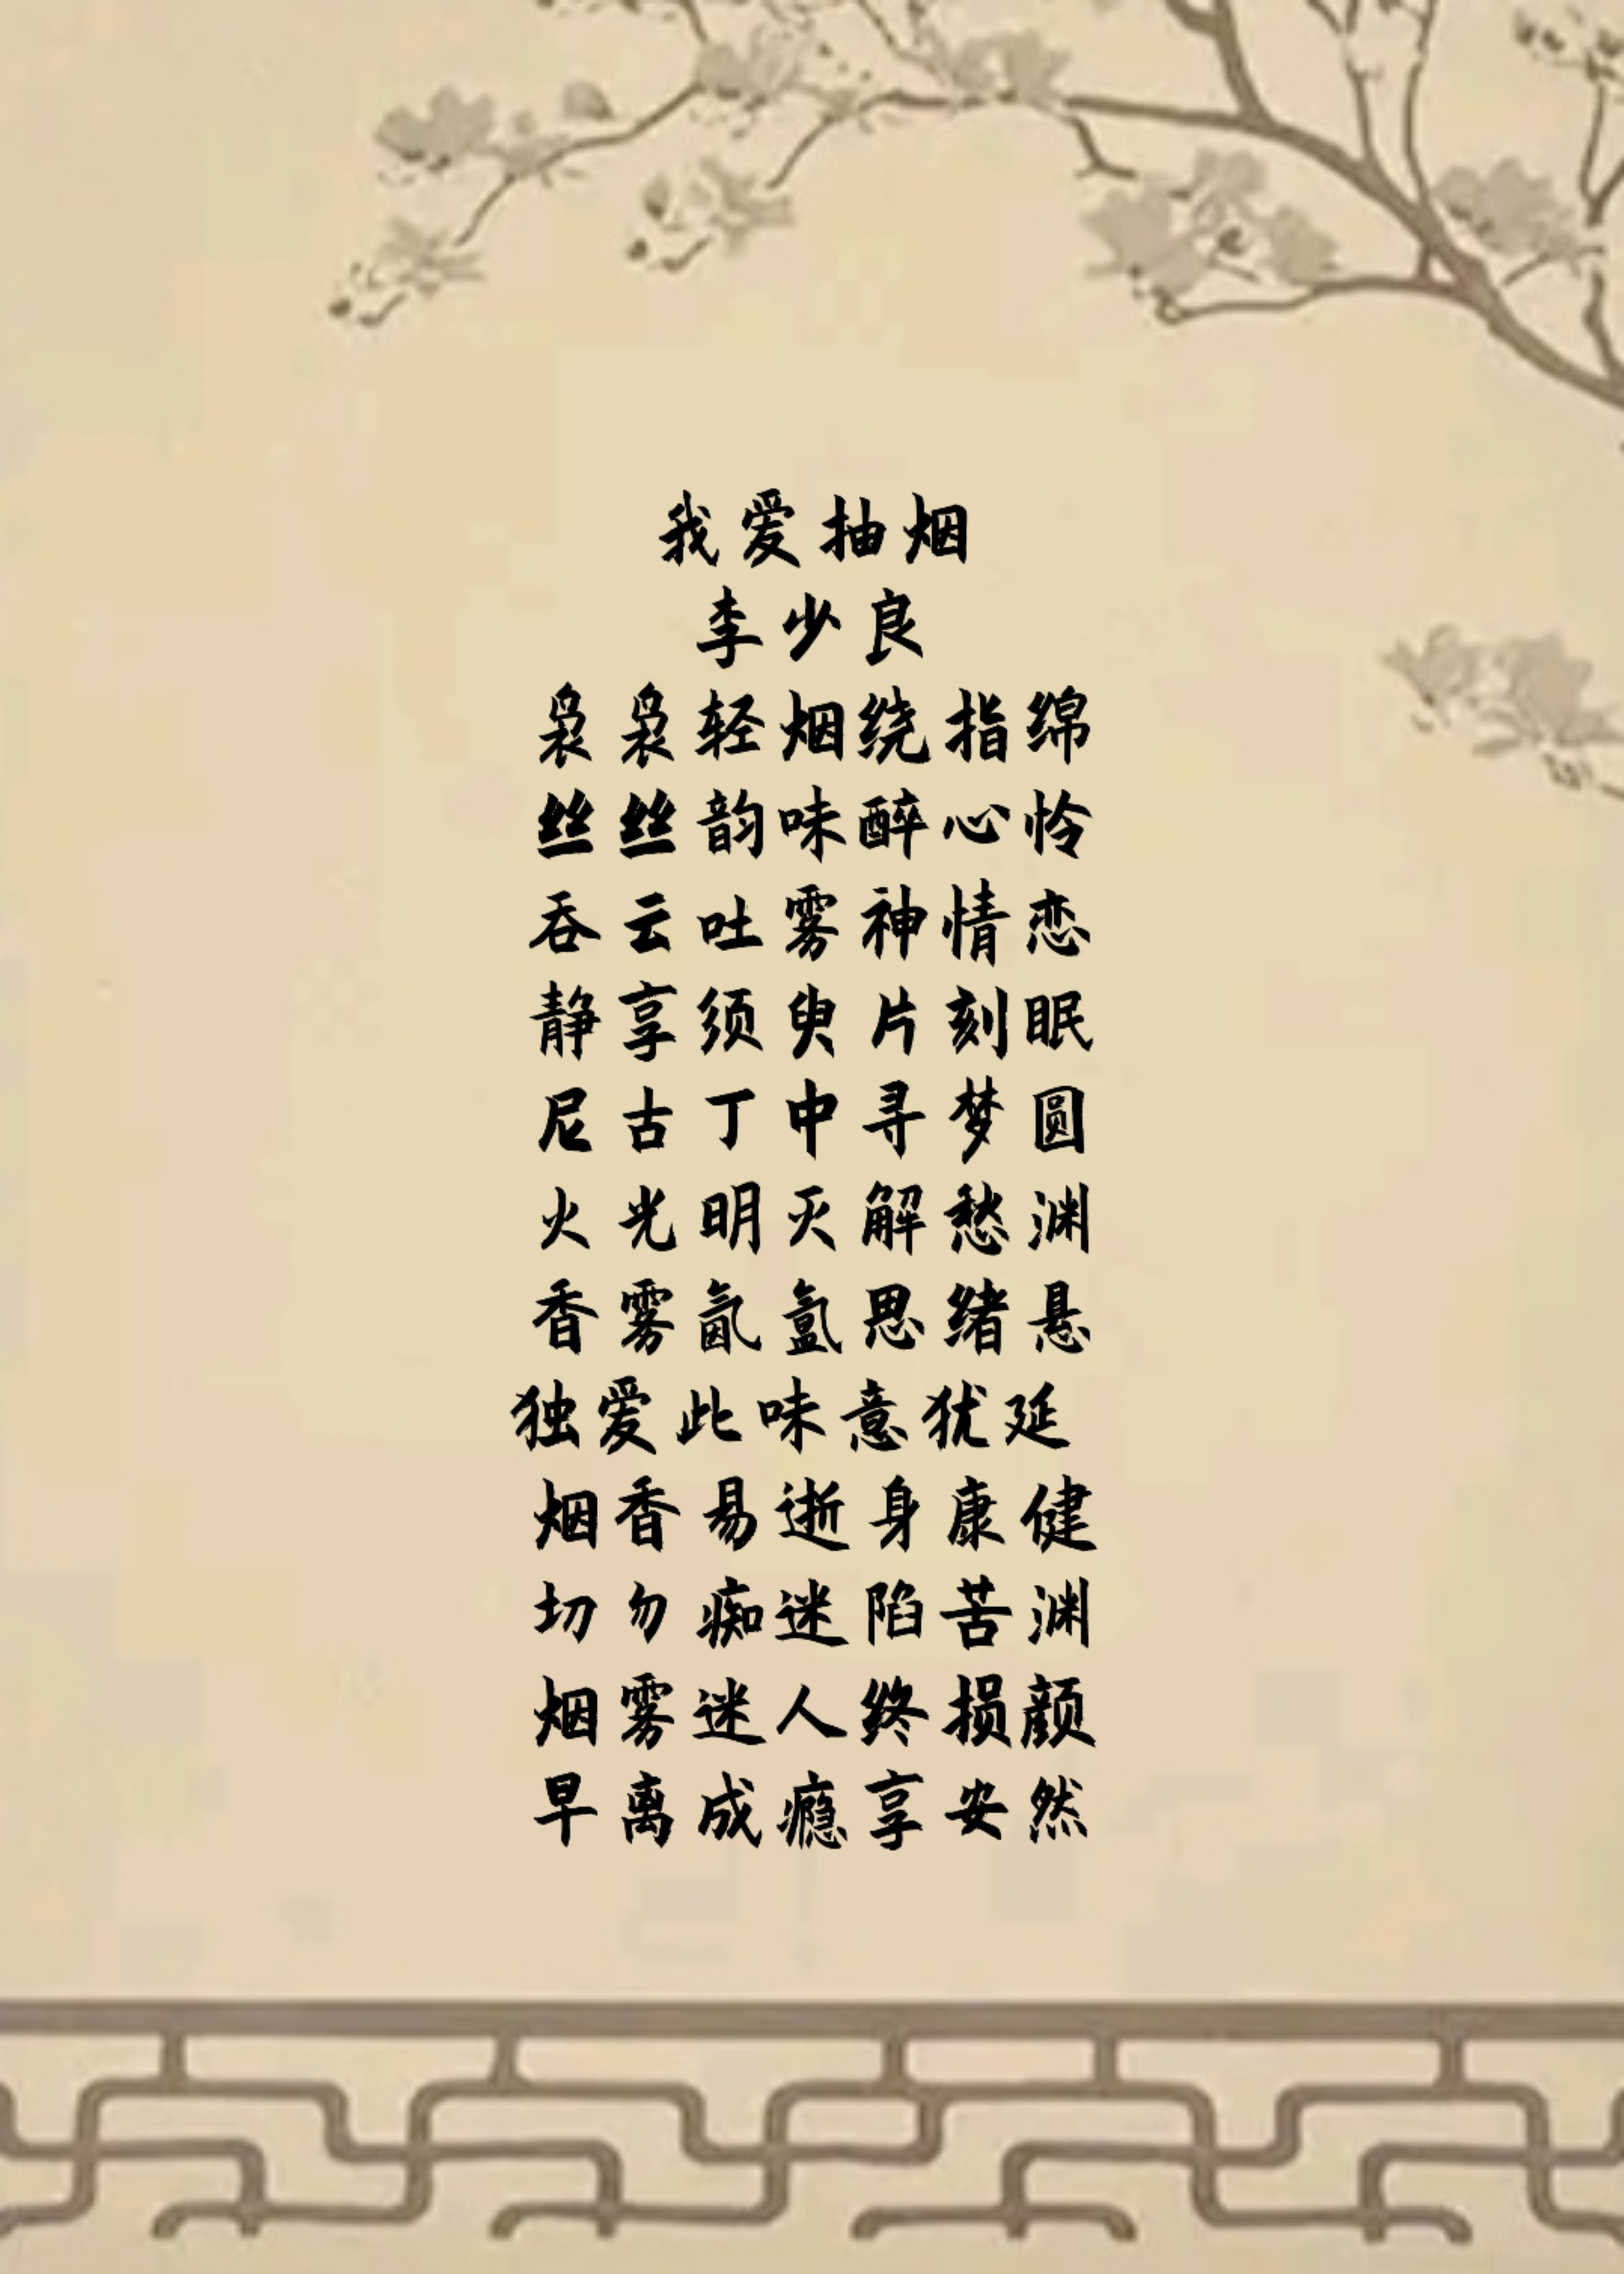 我爱抽烟
李少良
袅袅轻烟绕指绵
丝丝韵味醉心怜
吞云吐雾神情恋
静享须臾片刻眠
尼古丁中寻梦圆
火光明灭解愁渊
香雾氤氲思绪悬
独爱此味意犹延
烟香易逝身康健
切勿痴迷陷苦渊
烟雾迷人终损颜
早离成瘾享安然